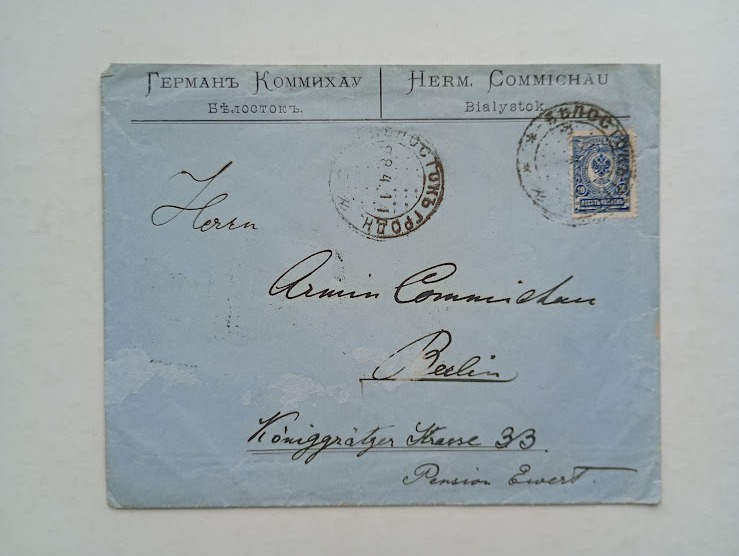 Германъ Коммихау
Бѣлостокъ.
Herm. Commichau
Bialystok
БѢЛОСТОКЪ ГРОДН
28 4.11
БѢЛОСТОК
10 10
ДЕСЯТЬ КОПѢЕКЪ
Herrn
Armin Commichau
Berlin
Königgrätzer Strasse 33.
Pension Ewert.